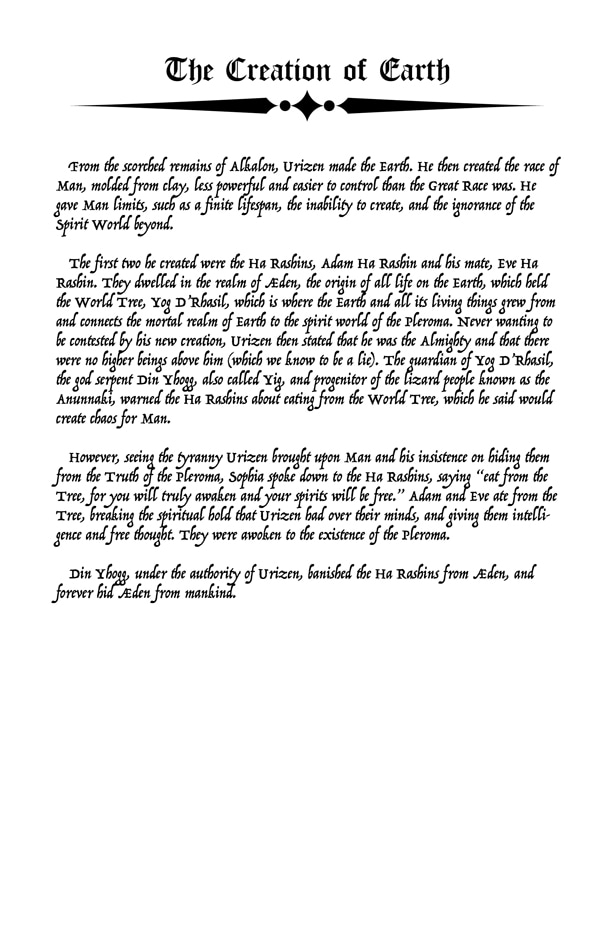 The Creation of Earth
From the scorched remains of Alkalon, Urizen made the Earth. He then created the race of
Man, molded from clay, less powerful and easier to control than the Great Race was. He
gave Man limits, such as a finite lifespan, the inability to create, and the ignorance of the
Spirit World beyond.
The first two he created were the Ha Rashins, Adam Ha Rashin and his mate, Eve Ha
Rashin. They dwelled in the realm of Æden, the origin of all life on the Earth, which held
the World Tree, Yog D'Rhasil, which is where the Earth and all its living things grew from
and connects the mortal realm of Earth to the spirit world of the Pleroma. Never wanting to
be contested by his new creation, Urizen then stated that he was the Almighty and that there
were no higher beings above him (which we know to be a lie). The guardian of Yog D'Rhasil,
the god serpent Din Yhogg, also called Yig, and progenitor of the lizard people known as the
Anunnaki, warned the Ha Rashins about eating from the World Tree, which he said would
create chaos for Man.
However, seeing the tyranny Urizen brought upon Man and his insistence on hiding them
from the Truth of the Pleroma, Sophia spoke down to the Ha Rashins, saying “eat from the
Tree, for you will truly awaken and your spirits will be free.” Adam and Eve ate from the
Tree, breaking the spiritual hold that Urizen had over their minds, and giving them intelli-
gence and free thought. They were awoken to the existence of the Pleroma.
Din Yhogg, under the authority of Urizen, banished the Ha Rashins from Æden, and
forever hid Æden from mankind.